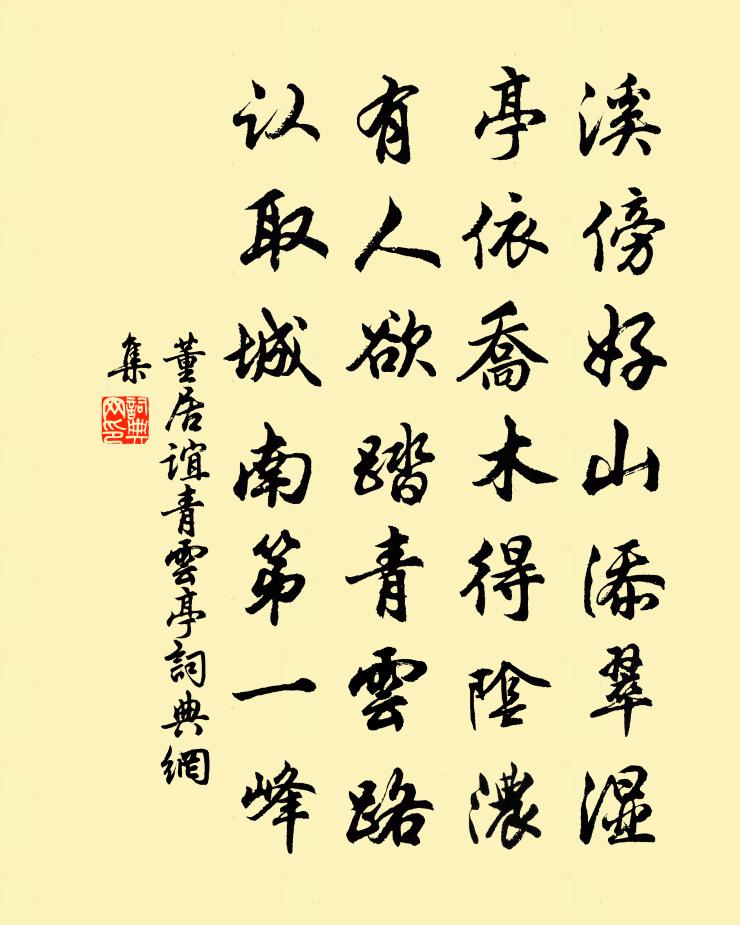 溪傍好山添翠濕
亭依喬木得陰濃
有人欲踏青雲路
认取城南第一峰
董居誼青雲亭詞典網
集
詞典網印